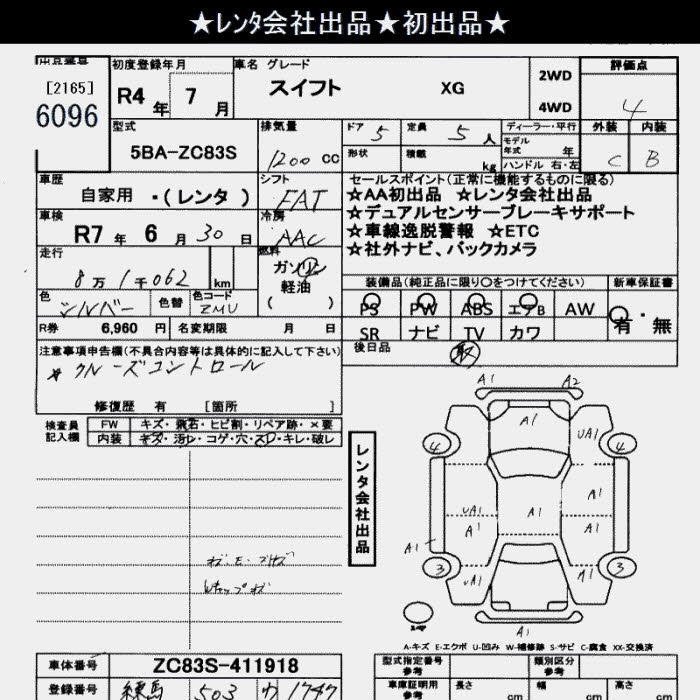 ★レンタ会社出品★初出品★
[2165]
6096
初度登録年月
R4年 7月
車名 グレード
スイフト XG
2WD
4WD
評価点
4
外装 内装
C B
型式
5BA-ZC83S
排気量
1200 CC
ドア 5
定員 5人
形状
積載 kg
ディーラー・平行
モデル年式 年
ハンドル 右・左
車歴
自家用 ・(レンタ)
シフト
FAT
車検
R7年 6月 30日
冷房
AAC
セールスポイント(正常に機能するものに限る)
☆AA初出品 ☆レンタ会社出品
☆デュアルセンサーブレーキサポート
☆車線逸脱警報 ☆ETC
☆社外ナビ、バックカメラ
走行
8万1千062 km
燃料
ガソリン
軽油
( )
色 シルバー
色替
色コード ZMU
装備品(純正品に限り○をつけてください)
新車保証書
PS PW ABS エアB AW
SR ナビ TV カワ
有・無
R券 6,960 円
名変期限 月 日
後日品
取
注意事項申告欄(不具合内容等は具体的に記入して下さい)
* クルーズコントロール
修復歴 有 [箇所 ]
検査員記入欄
FW キズ・飛石・ヒビ割・リペア跡・×要
内装 キズ・汚レ・コゲ・穴・スレ・キレ・破レ
レンタ会社出品
A1 A2
A1
UA1
4 4
A1
UA1 A1
A1 A1
A1
3 3
UA1 A1
A1
A-キズ E-エクボ U-凹み W-補修跡 S-サビ C-腐食 XX-交換済
車体番号 ZC83S-411918
登録番号 練馬 503 ワ 1747
型式指定番号 参考
類別区分 参考
車庫証明用 参考
長さ cm
幅 cm
高さ cm